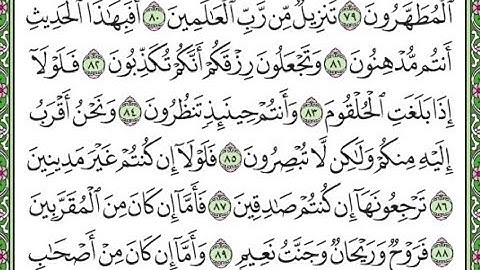 ٱلۡمُطَهَّرُونَ ٧٩ تَنزِيلٞ مِّن رَّبِّ ٱلۡعَٰلَمِينَ ٨٠ أَفَبِهَٰذَا ٱلۡحَدِيثِ
أَنتُم مُّدۡهِنُونَ ٨١ وَتَجۡعَلُونَ رِزۡقَكُمۡ أَنَّكُمۡ تُكَذِّبُونَ ٨٢ فَلَوۡلَآ
إِذَا بَلَغَتِ ٱلۡحُلۡقُومَ ٨٣ وَأَنتُمۡ حِينَئِذٖ تَنظُرُونَ ٨٤ وَنَحۡنُ أَقۡرَبُ
إِلَيۡهِ مِنكُمۡ وَلَٰكِن لَّا تُبۡصِرُونَ ٨٥ فَلَوۡلَآ إِن كُنتُمۡ غَيۡرَ مَدِينِينَ
٨٦ تَرۡجِعُونَهَآ إِن كُنتُمۡ صَٰدِقِينَ ٨٧ فَأَمَّآ إِن كَانَ مِنَ ٱلۡمُقَرَّبِينَ
٨٨ فَرَوۡحٞ وَرَيۡحَانٞ وَجَنَّتُ نَعِيمٖ ٨٩ وَأَمَّآ إِن كَانَ مِنۡ أَصۡحَٰبِ